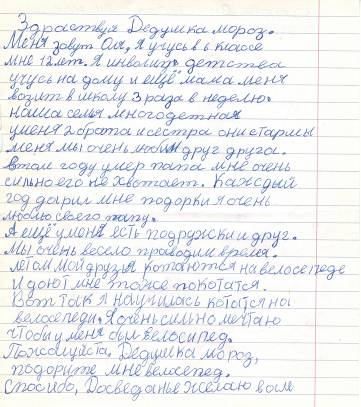 Здраствуй Дедушка мороз.
Меня зовут Оля, я учусь в 6 классе
мне 12 лет. Я инволид детства
учусь на дому и ещё мама меня
возит в школу 3 раза в неделю.
наша семья многодетная
у меня 2 брата и сестра они старшы
меня мы очень любим друг друга.
в том году умер папа мне очень
сильно его не хвотает. Каждый
год дарил мне подорки я очень
люблю своего папу.
А ещё у меня есть подружки и друг.
Мы очень весело проводим время.
летом мои друзья котаются на велосепеде
и дают мне тоже покотатся.
Вот так я научилась котатся на
велосепеди. Я очень сильно мечтаю
чтобы у меня был велосипед.
Пожалуйста, Дедушка мороз,
подорите мне велосепед.
Спосибо, Досведанье желаю вам